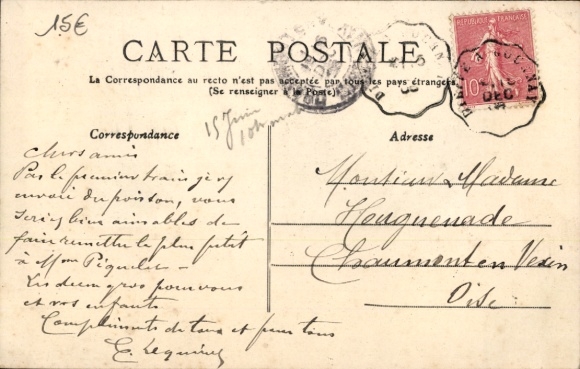 15€
CARTE POSTALE
La Correspondance au recto n'est pas acceptée par tous les pays étrangers
(Se renseigner à la Poste)
RÉPUBLIQUE FRANÇAISE
10
DEC
Correspondance
Adresse
15 Juin
Chers amis
Par le premier train j'ai
envoie du poisson, vous
serez bien aimables de
faire remettre le plus petit
à Mom
Les deux gros pour vous
et vos enfants
Compliments de tous et pour tous
Monsieur & Madame
Houguenade
Chaumont en Vexin
Oise